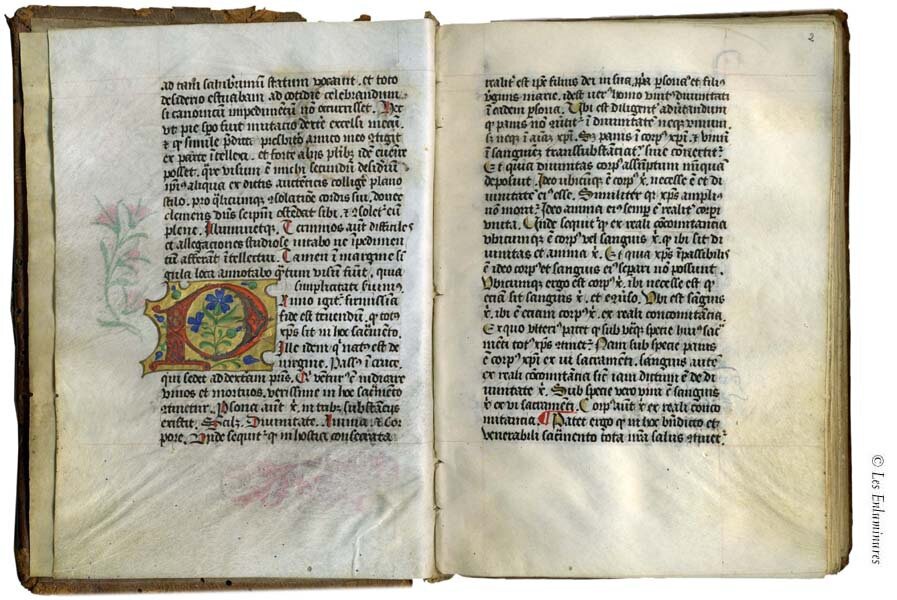 ad tam salubrimū statum vocauit. et toto
desiderio estuabam ad cotidie celebrandum
si canonicū impedimētū nō occurrisset. Hec
vt pie spo fuit mutacio dextre excelsi
ꝫ simile presbitō amico meo
ex parte itellexi. et forte alijs idē
posset. visum ē michi secundū desideriū
ipius aliqua ex dictis autēticis colligere plano
stilo. pro consolatiōe cordis sui, donec
clemens dn̄s seipm̄ ostēdat sibi. ꝫ
plene. Illuminetqꝫ. Terminos aūt difficiles
et allegaciones studiose vitabo ne ipedimen
tū afferant itellectui. Tamen ī margine si
gula loca annotabo visū fuīt. quia
simplicitati
Primo igit̄ firmissia
fide est tenendum, tot
xp̄s sit in hoc sac̄mēto.
Ille idem nat est de
virgine. Pass ī cruce.
qui sedet ad dextam pr̄is. Et ventur ē iudicare
viuos et mortuos, verissime in hoc sac̄mēto
ꝯtinetur. Psona aūt in trib substācijs
existit. Scilꝫ. Diuinitate. Anima ꝫ Cor
pore. Unde sequit̄ in hostia consecrata
2
realit̄ est ip̄e filius dei in sua psona et fili
virginis marie. idest ver homo vnit diuinitati
ī eadem psona. Ubi est diligent aduertendum
panis nō vertit̄ ī diuinitatē neqꝫ vinum
sꝫ neqꝫ ī aīaꝫ xp̄i. Sꝫ panis ī corp ꝫ vinū
ī sanguinē transsubstanciat̄ siue conertit̄
Et quia diuinitas corp assumptum nūquā
deposuit. Ideo vbicūqꝫ ē corp necesse ē et di
uinitatē ei esse. Similiter xp̄s ampli
nō morit̄. Ideo anima ei semp ē realit̄ corpi
vnita. Unde sequit̄ ex reali cōcomitācia
vbicumqꝫ ē corp vel sanguis ibi sit di
uinitas et anima Et quia xp̄s īpassibilis
ē ideo corp et sanguis ei separi nō possunt.
Ubicumqꝫ ergo est corp ibi necesse est
eciā sit sanguis et ecōuerso. Ubi est sanguis
ibi ē eciam corp ex reali concomitācia.
Ex quo vlteri patet sub specie hui sac̄
mēti tot xp̄s ꝯtinet̄. Nam sub specie panis
ē corp xp̄i ex vi sacramēti, sanguis autē
ex reali cōcomitācia sicut iam dictum ē de di
uinitate Sub specie vero vini ē sanguis
ex vi sacramēti. Corp aūt ex reali conco
mitancia. Patet ergo in hoc bn̄dicto et
venerabili sac̄mento tota nr̄a salus ꝯtinet̄
© Les Enluminures